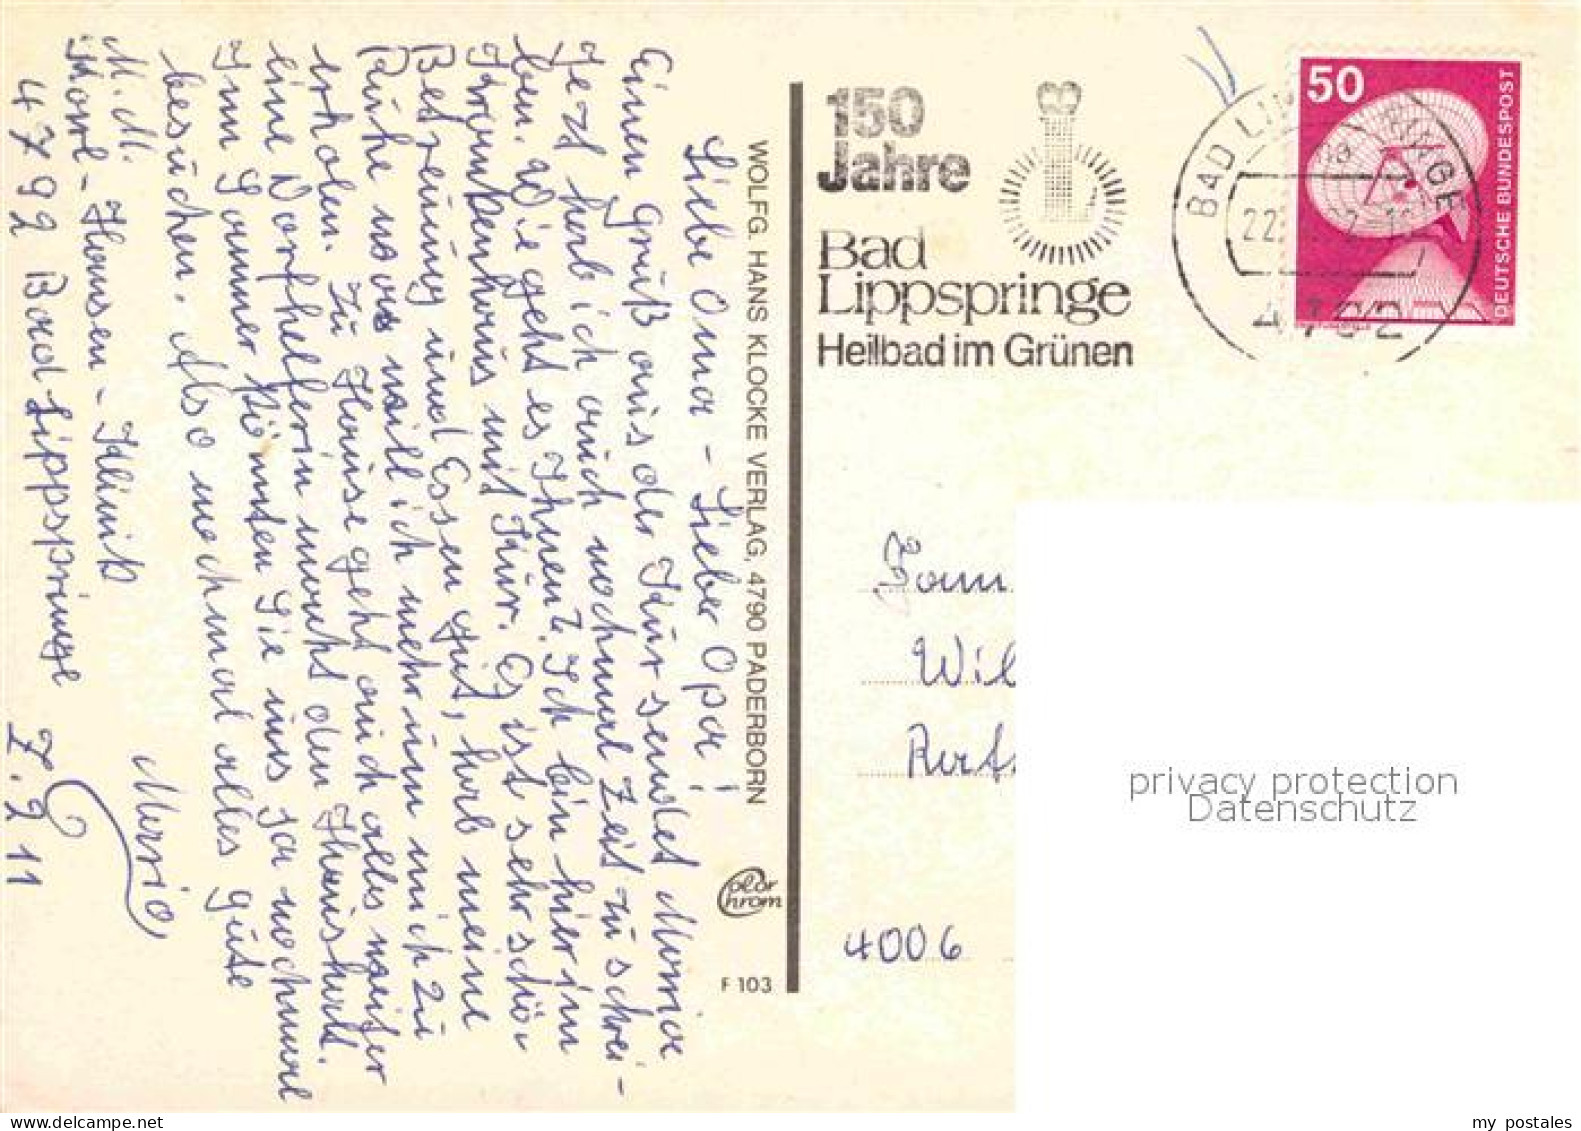 Liebe Oma - Lieber Opa!
Einen Gruß aus der Kur sendet Maria
Jezt hab ich auch nochmal Zeit zu schrei-
ben. Wie geht es Ihnen?. Ich bin hier im
Krankenhaus mit Kur. Es ist sehr schön
Betreuung und Essen gut, hab meine
Ruhe was will ich mehr um mich zu
erholen. Zu Hause geht auch alles weiter
eine Dorfhelferin macht den Haushalt.
Im Sommer könnten Sie uns ja nochmal
besuchen. Also nochmal alles gute
Maria
M. M.
Karl-Hansen-Klinik
4792 Bad Lippspringe Z. 211
WOLFG. HANS KLOCKE VERLAG, 4790 PADERBORN
Color
Chrom
F 103
150
Jahre
Bad
Lippspringe
Heilbad im Grünen
BAD LIPPSPRINGE
22
4792
50
DEUTSCHE BUNDESPOST
Fam
Wil
4006
privacy protection
Datenschutz
my postales